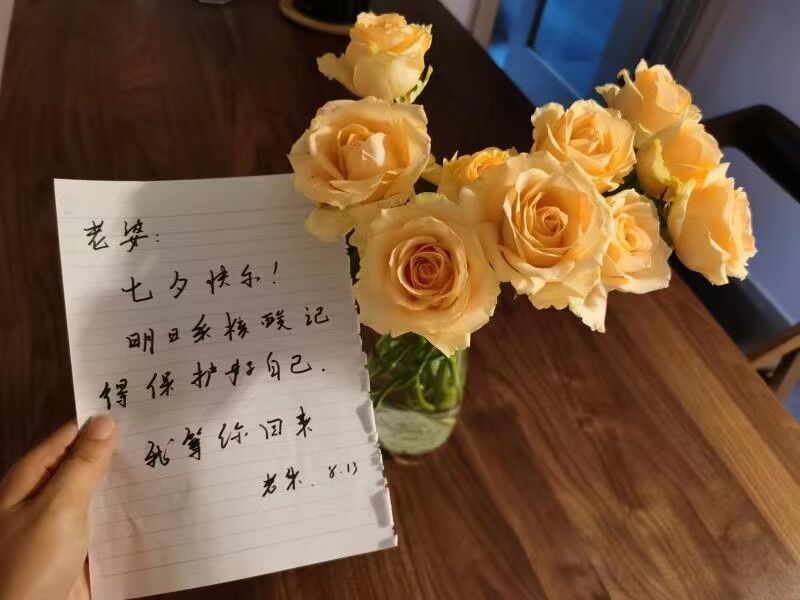 老婆：
七夕快乐！
明日采核酸记
得保护好自己.
我等你回来
老朱. 8.13